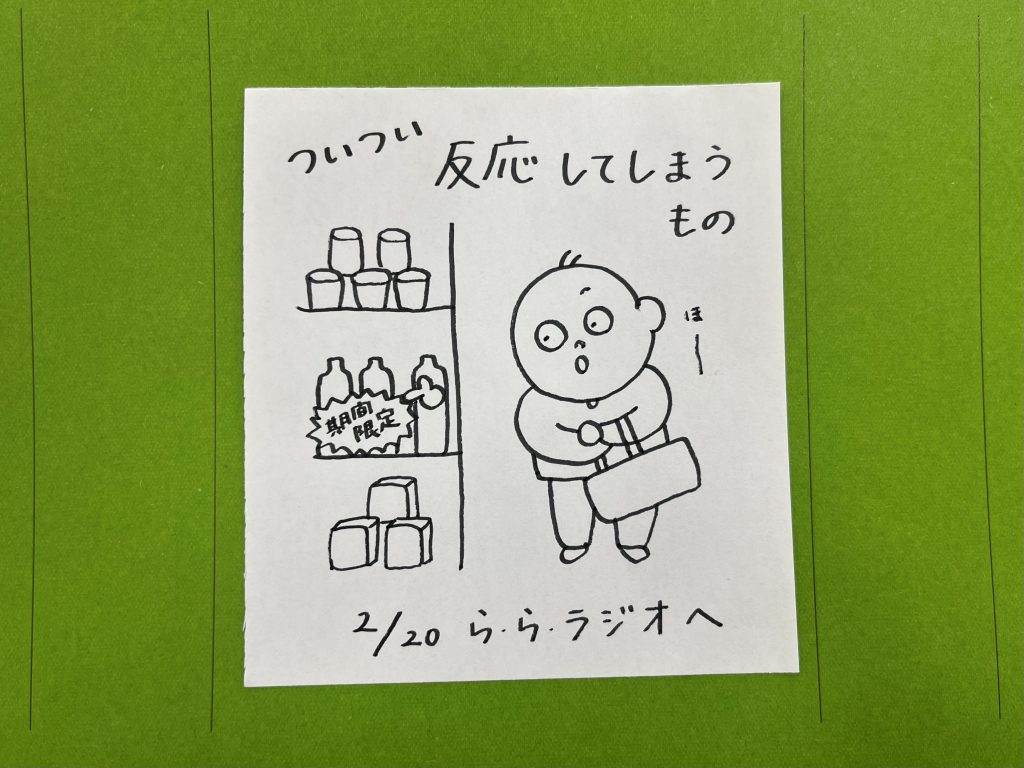 ついつい
反応してしまう
もの
ほー
期間
限定
2/20 ら.ら.ラジオへ